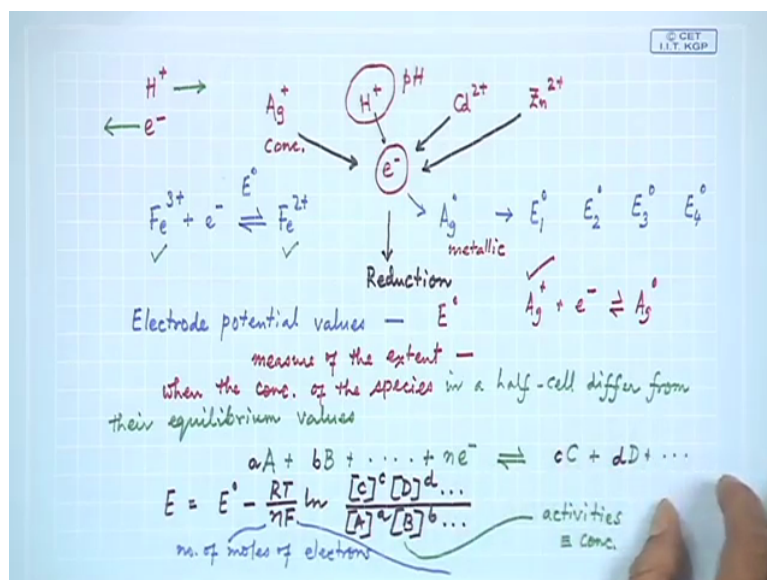 © CET
I.I.T. KGP
H⁺ →
← e⁻
Ag⁺ conc.
H⁺ pH
Cd²⁺
Zn²⁺
e⁻
Fe³⁺ + e⁻ ⇌ Fe²⁺
E°
Ag° → E₁° E₂° E₃° E₄°
metallic
Reduction
Ag⁺ + e⁻ ⇌ Ag°
Electrode potential values — E°
measure of the extent —
when the conc. of the species in a half-cell differ from
their equilibrium values
aA + bB + ····· + ne⁻ ⇌ cC + dD + ···
E = E° - RT/nF ln [C]ᶜ [D]ᵈ... / [A]ᵃ [B]ᵇ ...
activities
≡ conc.
no. of moles of electrons